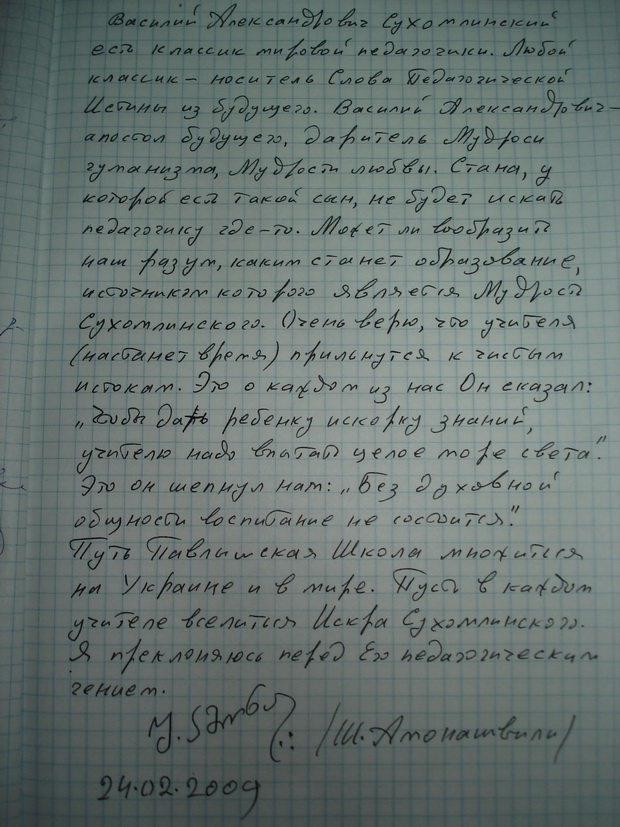 Василий Александрович Сухомлинский
есть классик мировой педагогики. Любой
классик – носитель Слова Педагогической
Истины из будущего. Василий Александрович –
апостол будущего, даритель Мудроси
гуманизма, Мудрости любвы. Стана, у
которой есть такой сын, не будет искать
педагогику где-то. Может ли вообразить
наш разум, каким станет образование,
источником которого является Мудрость
Сухомлинского. Очень верю, что учителя
(настанет время) прильнутся к чистым
истокам. Это о каждом из нас Он сказал:
„Чтобы дать ребенку искорку знаний,
учителю надо впитать целое море света“.
Это он шепнул нам: „Без духовной
общности воспитание не состоится“.
Путь Павлышская Школа множиться
на Украине и в мире. Пусть в каждом
учителе вселиться Искра Сухомлинского.
Я преклоняюсь перед Его педагогическим
гением.
/Ш. Амонашвили/
24.02.2009